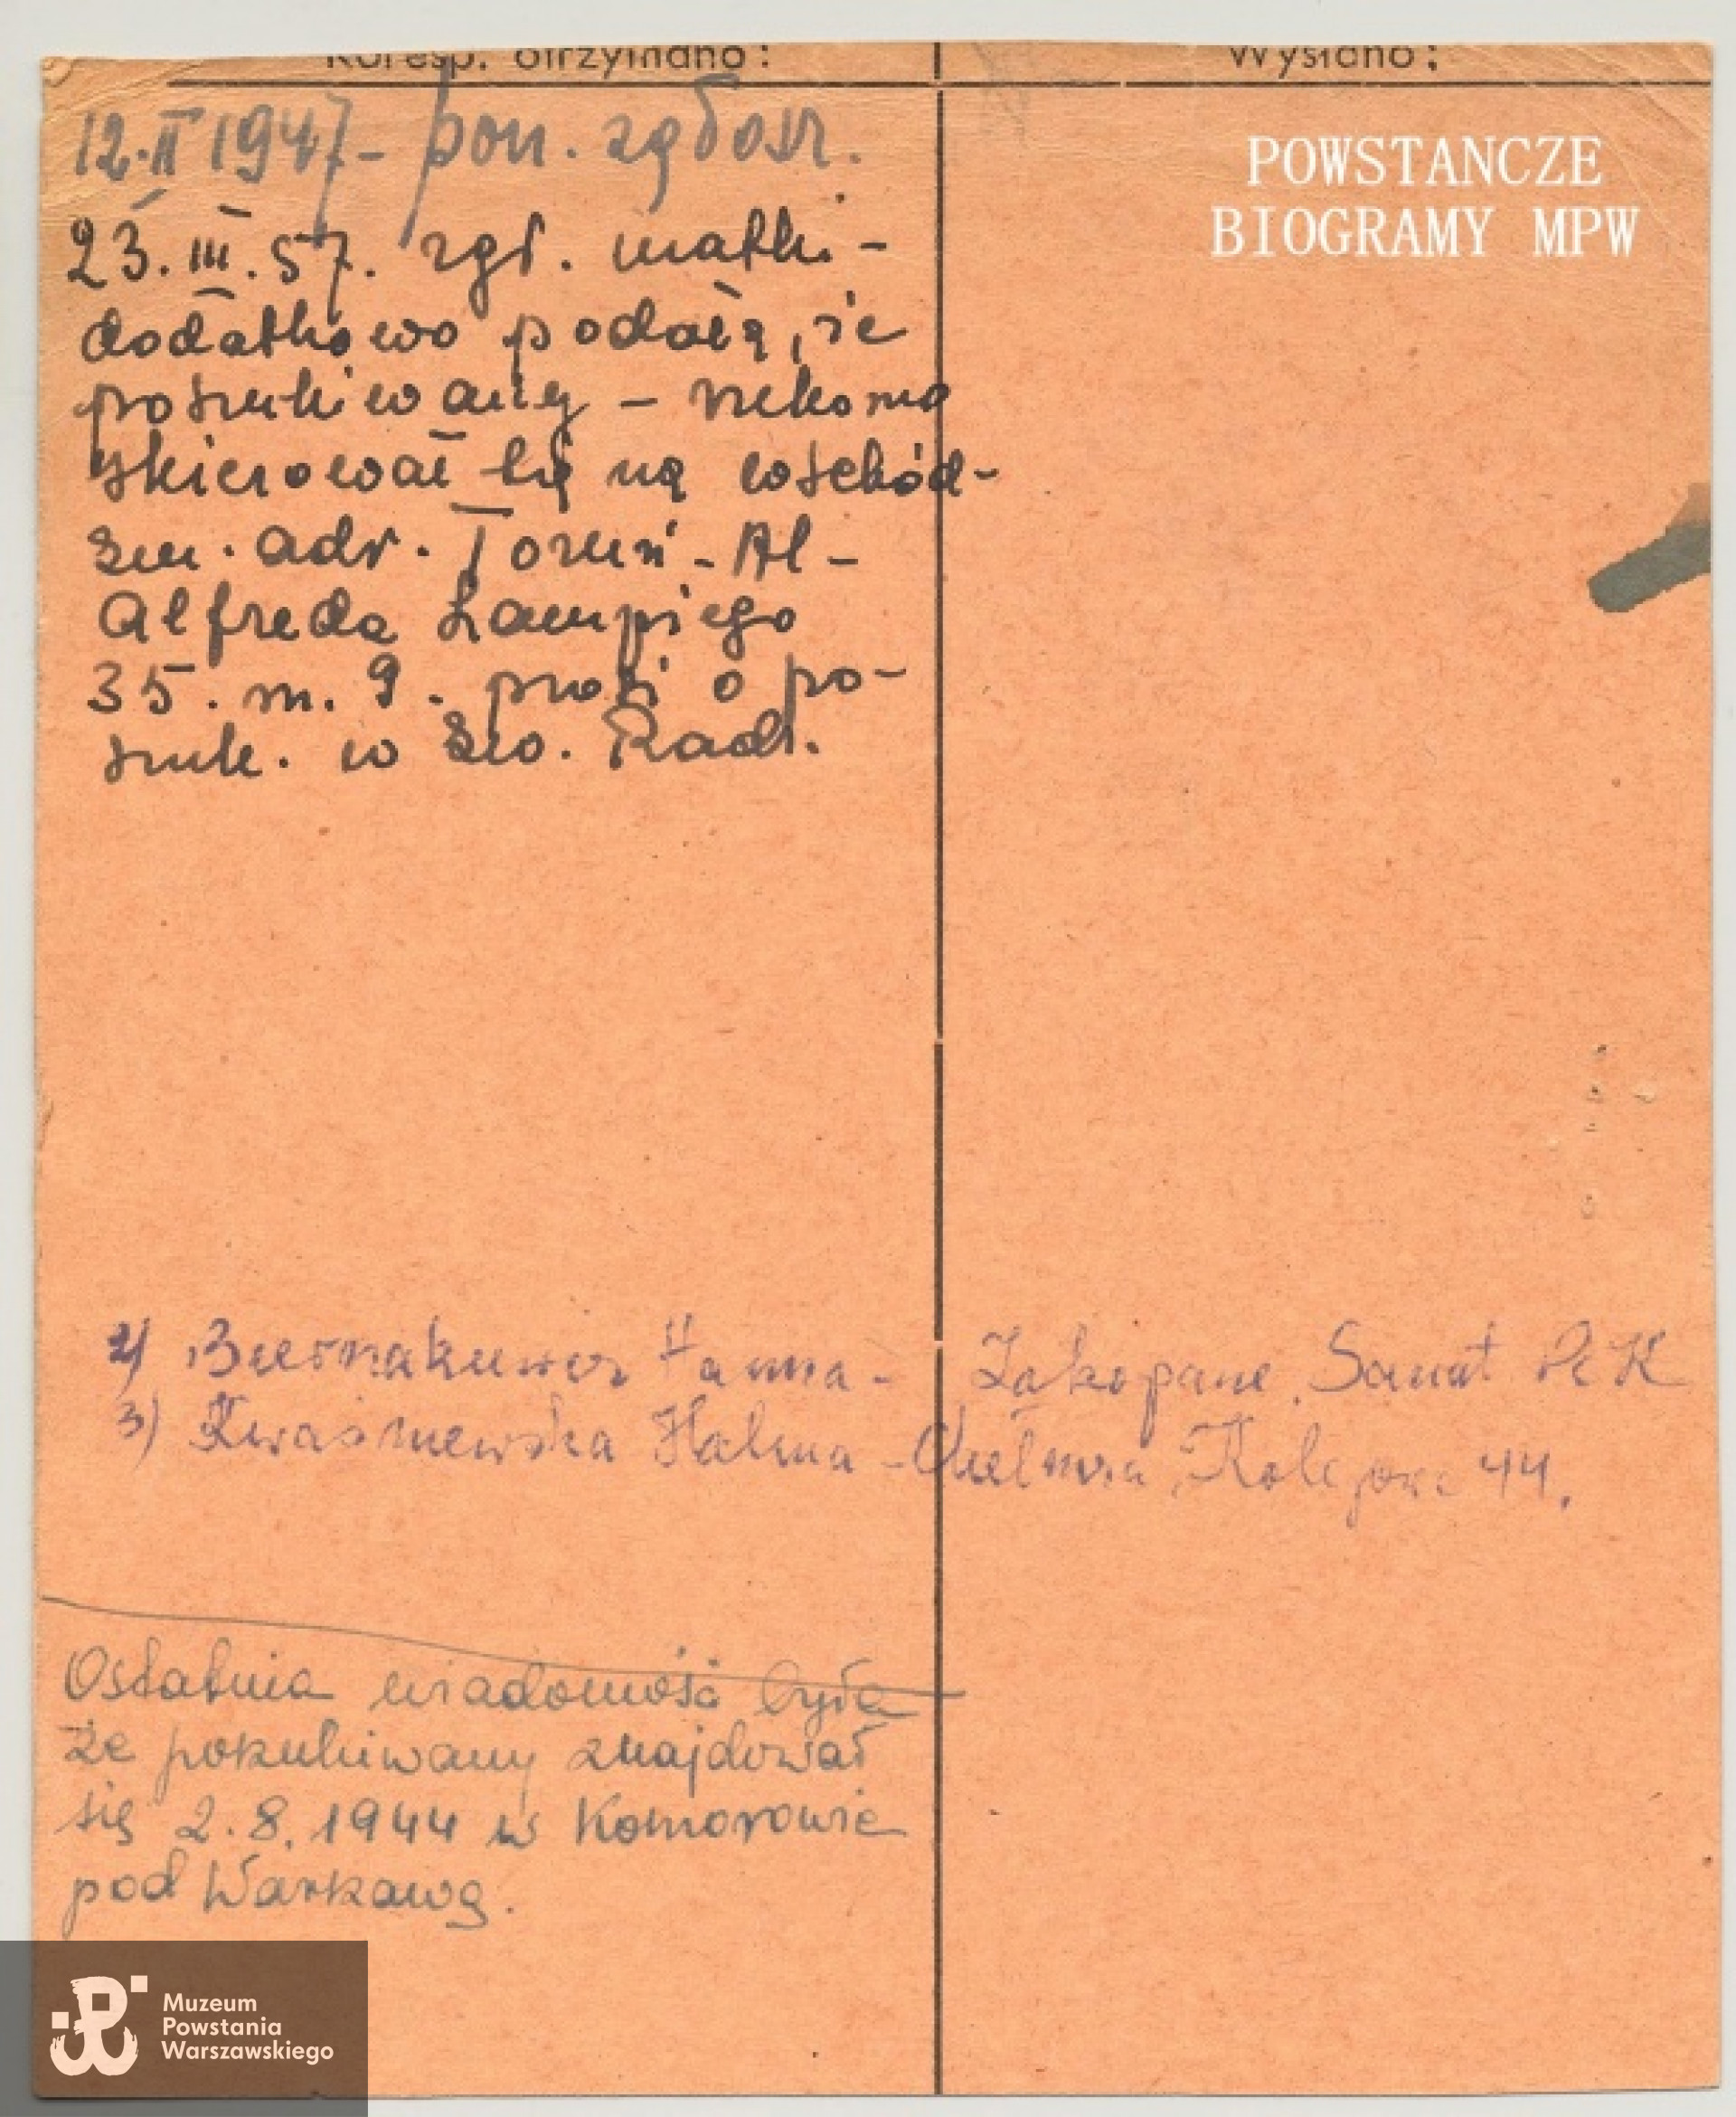 Koresp. otrzymano:
Wysłano:
12.II 1947 - pon. zgłosz.
POWSTANCZE
BIOGRAMY MPW
23.III.57. zgł. matki -
dodatkowo podała, że
poszukiwany - rzekomo
skierował się na wschód -
zm. adr. Toruń - Al -
Alfreda Lampiego
35. m. 9. prosi o po-
szuk. w Zw. Radz.
2) Hanna - Zakopane, Sanat PCK
3) Kwaśniewska Halina - Chełmża, Kolejowa 44.
Ostatnia wiadomość była
że poszukiwany znajdował
się 2.8.1944 w Komorowie
pod Warszawą.
Muzeum
Powstania
Warszawskiego